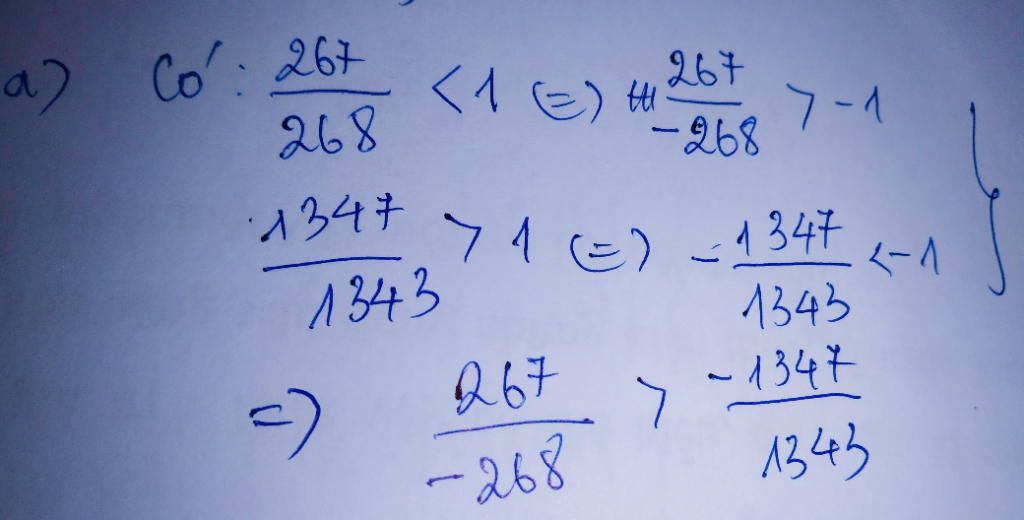 a) Có: 267/268 < 1 (=) 267/-268 > -1
1347/1343 > 1 (=) -1347/1343 < -1
=) 267/-268 > -1347/1343